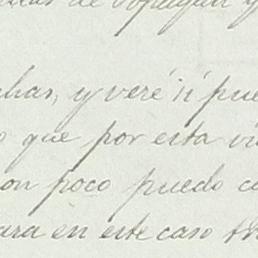 de Popayan y
has, y veré si pue
que por esta vi
on poco puedo co
ara en este caso